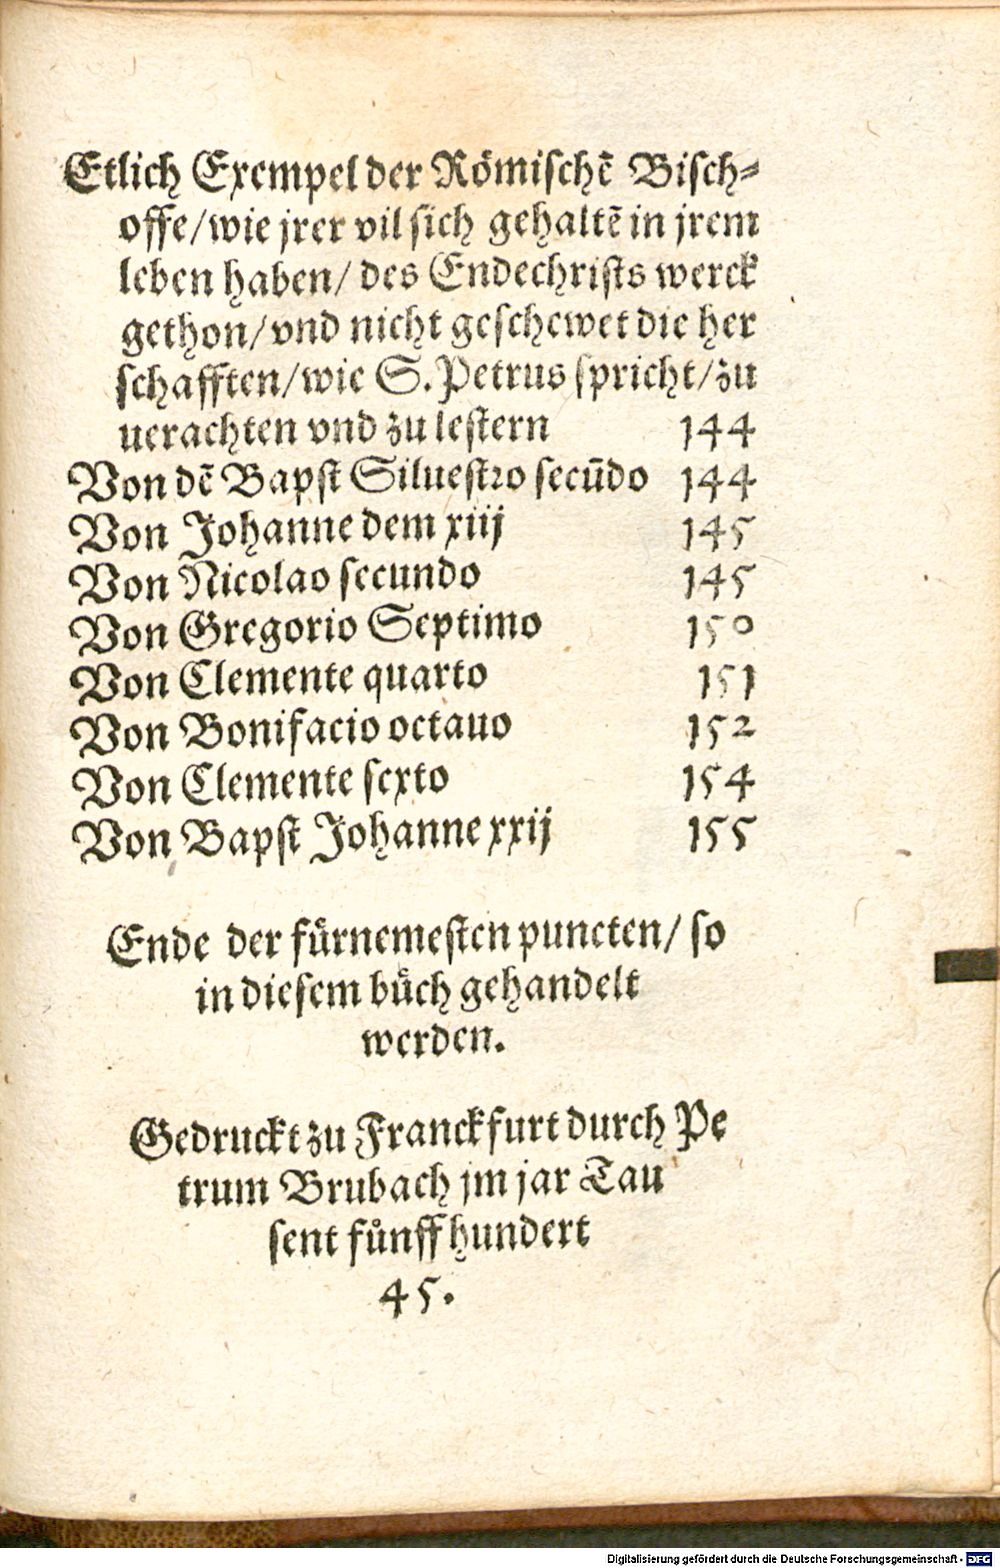 Etlich Exempel der Römischẽ Bisch⸗
offe/wie jrer vil sich gehaltẽ in jrem
leben haben/ des Endechrists werck
gethon/vnd nicht geschewet die her
schafften/wie S. Petrus spricht/zu
uerachten vnd zu lestern 144
Von dẽ Bapst Siluestro secũdo 144
Von Johanne dem xiij 145
Von Nicolao secundo 145
Von Gregorio Septimo 150
Von Clemente quarto 151
Von Bonifacio octauo 152
Von Clemente sexto 154
Von Bapst Johanne xxij 155
Ende der fürnemesten puncten/ so
in diesem bůch gehandelt
werden.
Gedruckt zu Franckfurt durch Pe
trum Brubach jm jar Tau
sent fůnffhundert
45.
Digitalisierung gefördert durch die Deutsche Forschungsgemeinschaft - DFG